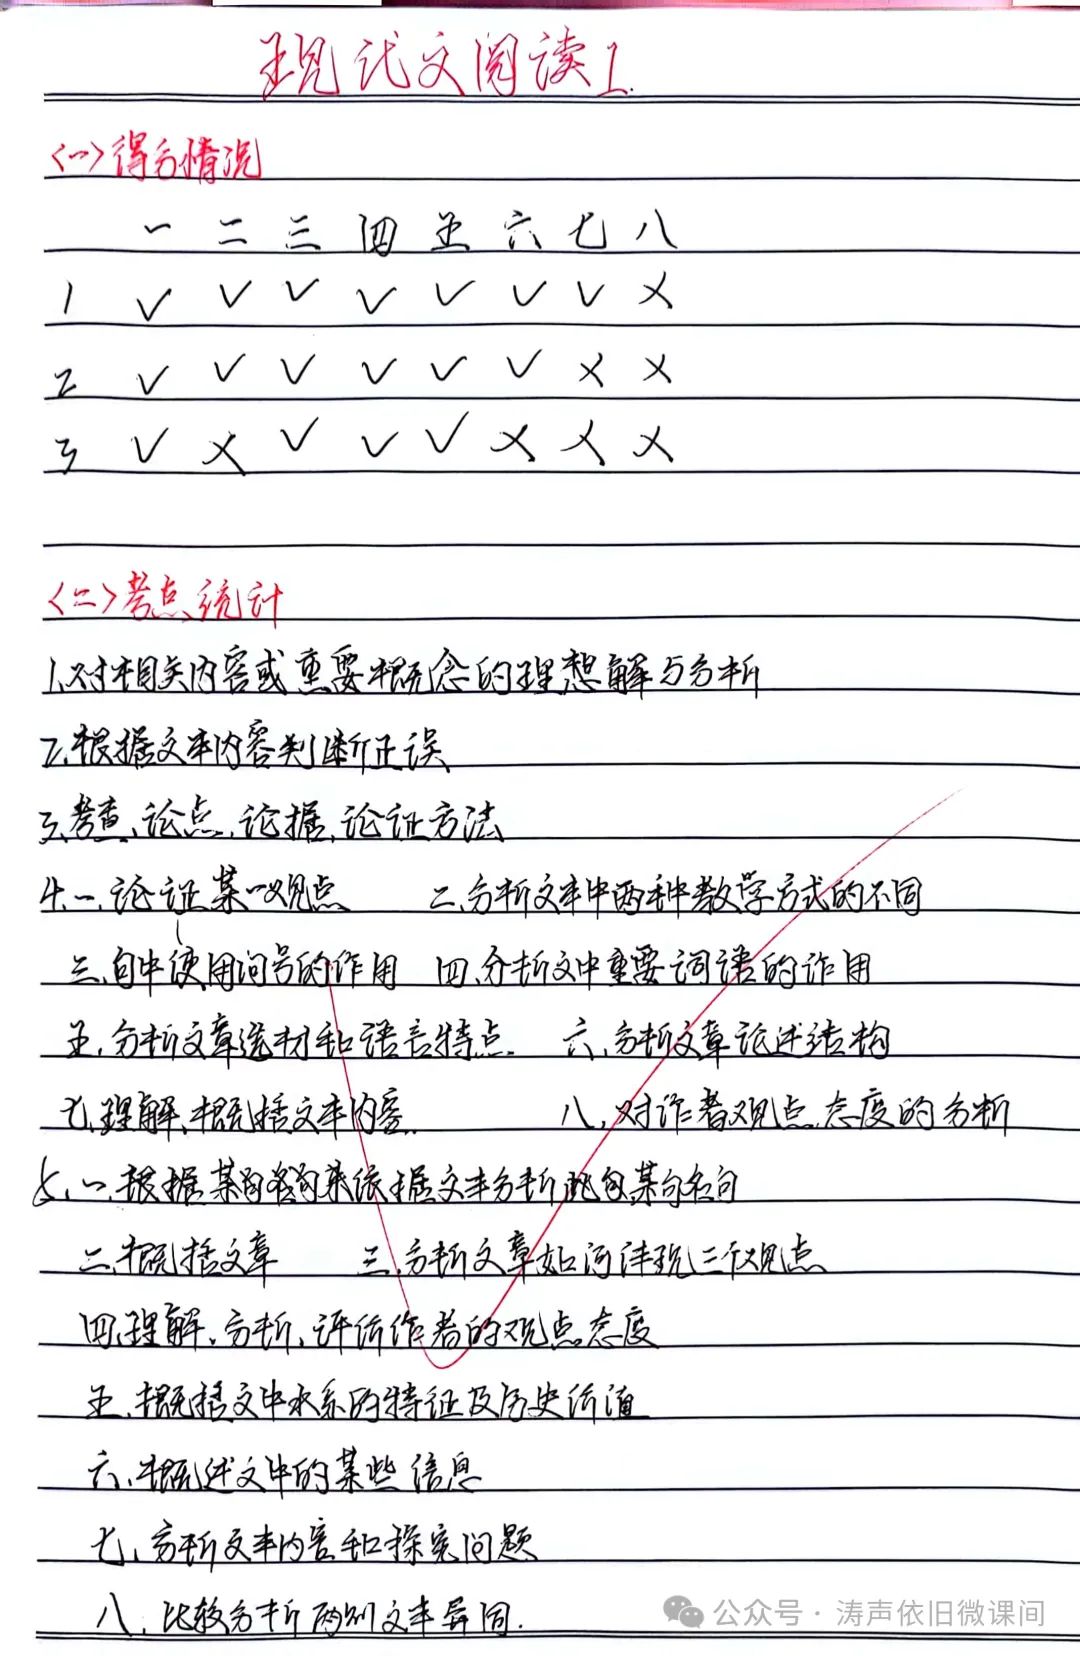 现代文阅读1.
<一>得分情况
一 二 三 四 五 六 七 八
1 ✓ ✓ ✓ ✓ ✓ ✓ ✓ ×
2 ✓ ✓ ✓ ✓ ✓ ✓ × ×
3 ✓ × ✓ ✓ ✓ × × ×
<二>考点统计
1.对相关内容或重要概念的理想解与分析
2.根据文本内容判断正误
3.考查、论点、论据、论证方法
4.一、论证某一观点 二、分析文本中两种教学方式的不同
三、句中使用问号的作用 四、分析文中重要词语的作用
五、分析文章选材和语言特点 六、分析文章论述结构
七、理解、概括文本内容 八、对作者观点、态度的分析
5.一、根据某句名句来依据文本分析此句某句名句
二、概括文章 三、分析文章如何体现三个观点
四、理解、分析、评价作者的观点态度
五、概括文中水系的特征及历史价值
六、概述文中的某些信息
七、分析文本内容和探究问题
八、比较分析两则文本异同.
公众号·涛声依旧微课间